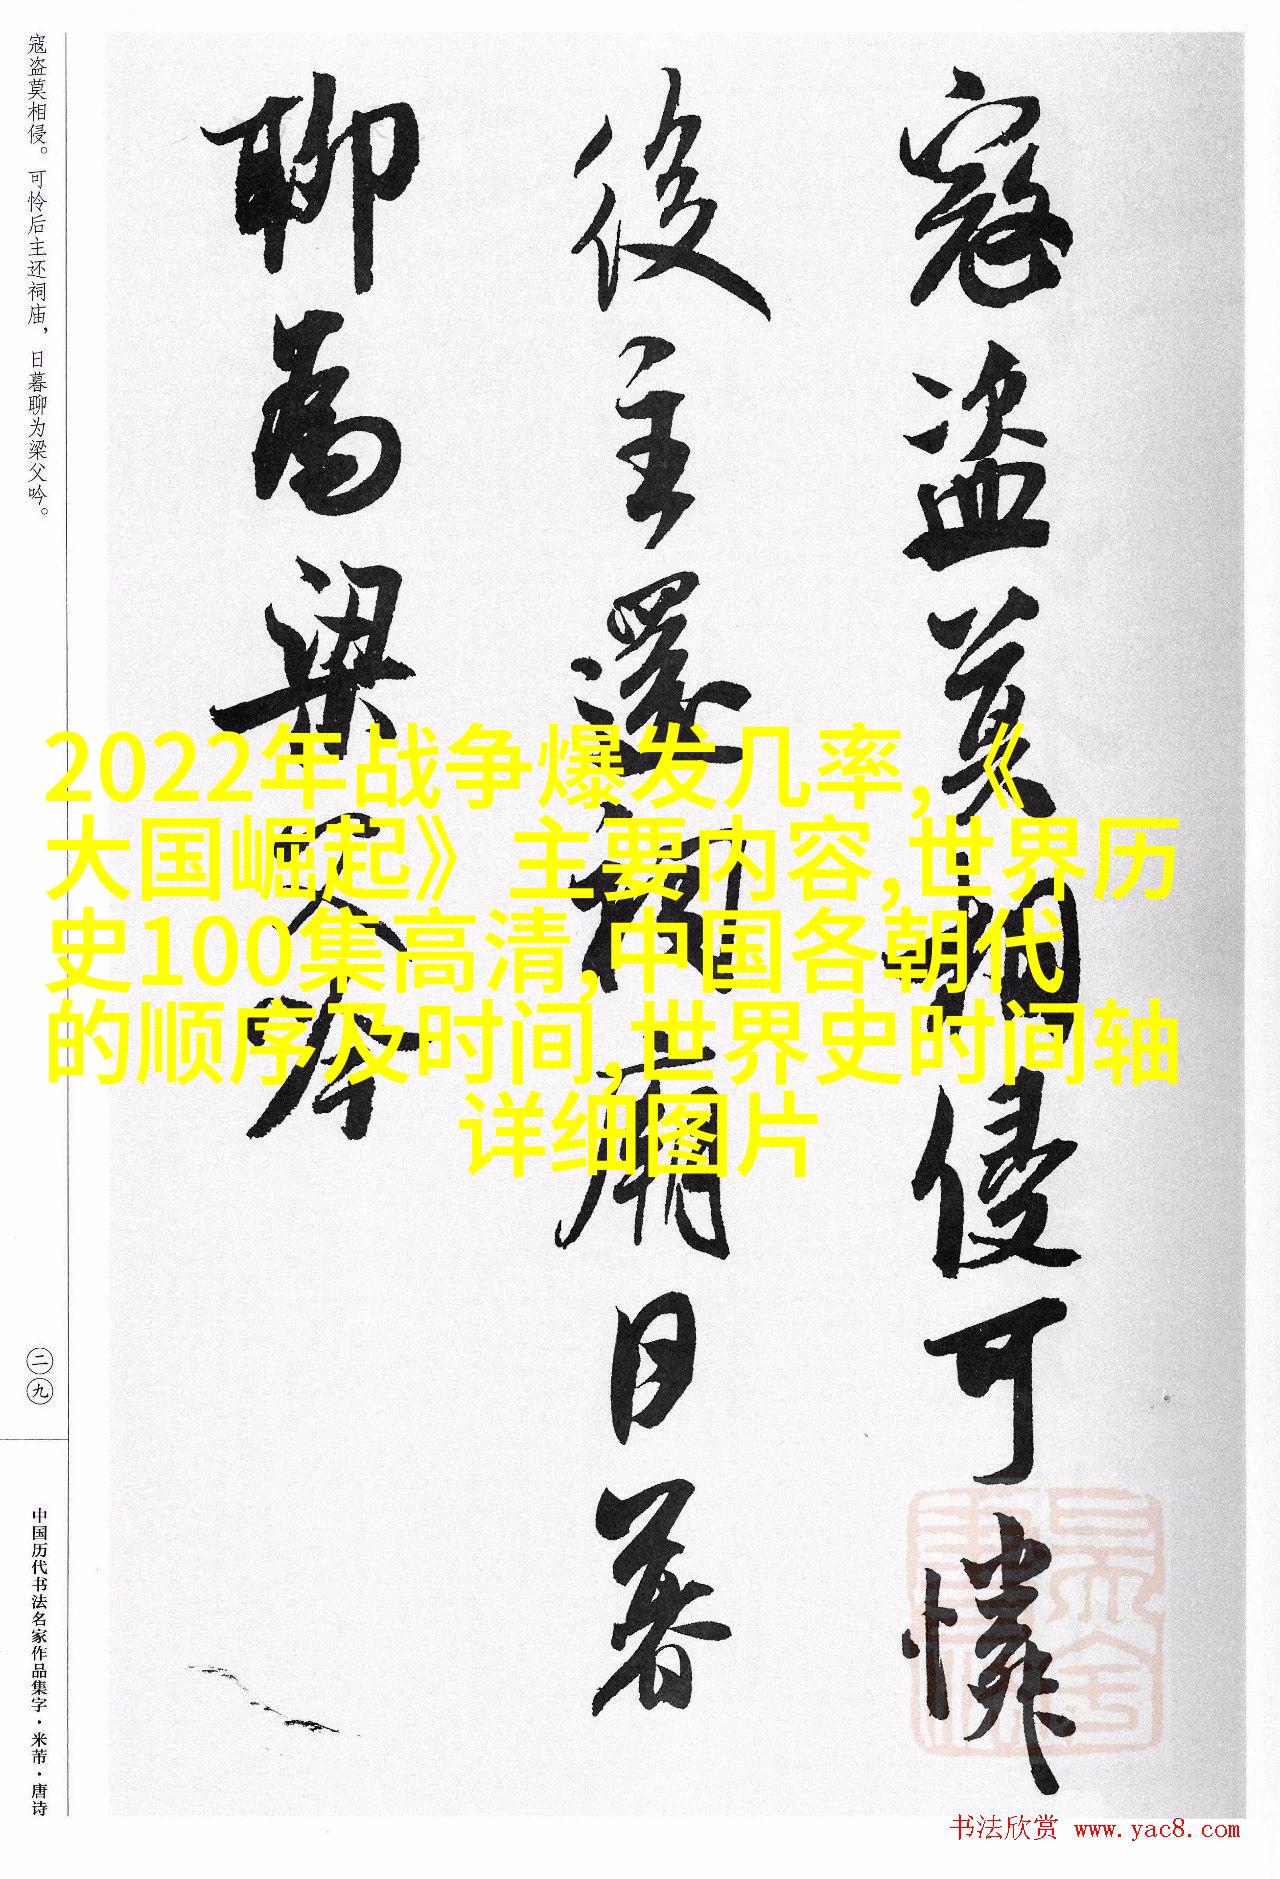 寇盗莫相侵可憐
後主還祠廟日暮
聊為梁父吟
寇盗莫相侵。可怜后主还祠庙，日暮聊为梁父吟。
二九
中国历代书法名家作品集字·米芾·唐诗
2022年战争爆发几率,《
大国崛起》主要内容,世界历
史100集高清,中国各朝代
的顺序及时间,世界史时间轴
详细图片
书法欣赏 www.yac8.com